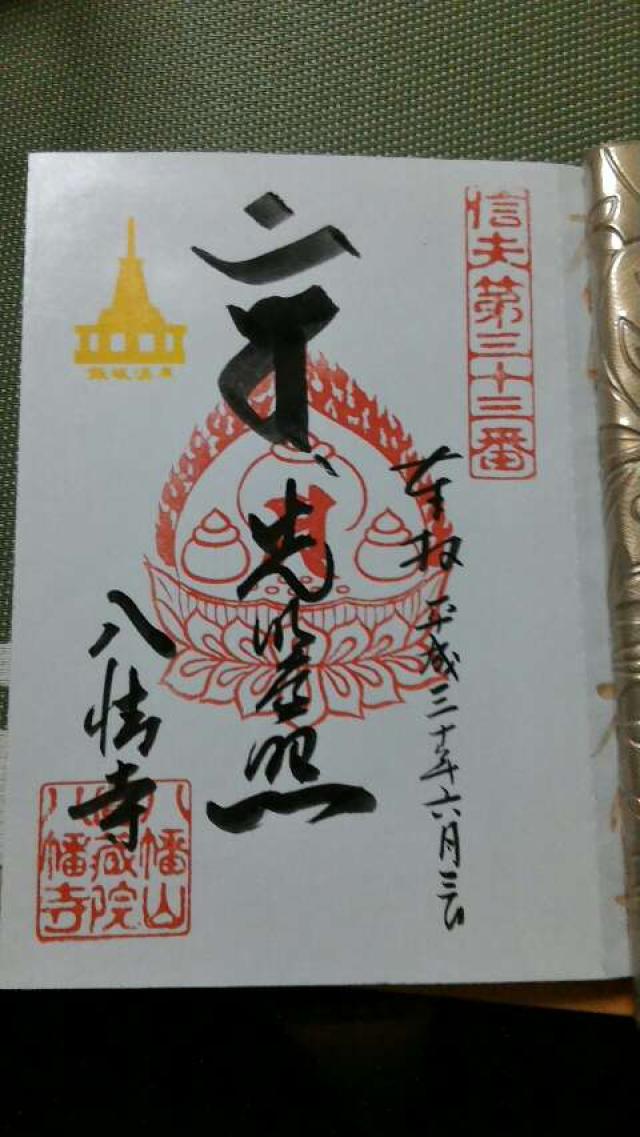 信夫第三十三番
奉拝 平成三十年六月三日
光明遍照
八幡寺
飯坂温泉
八幡山
蔵院
八幡寺